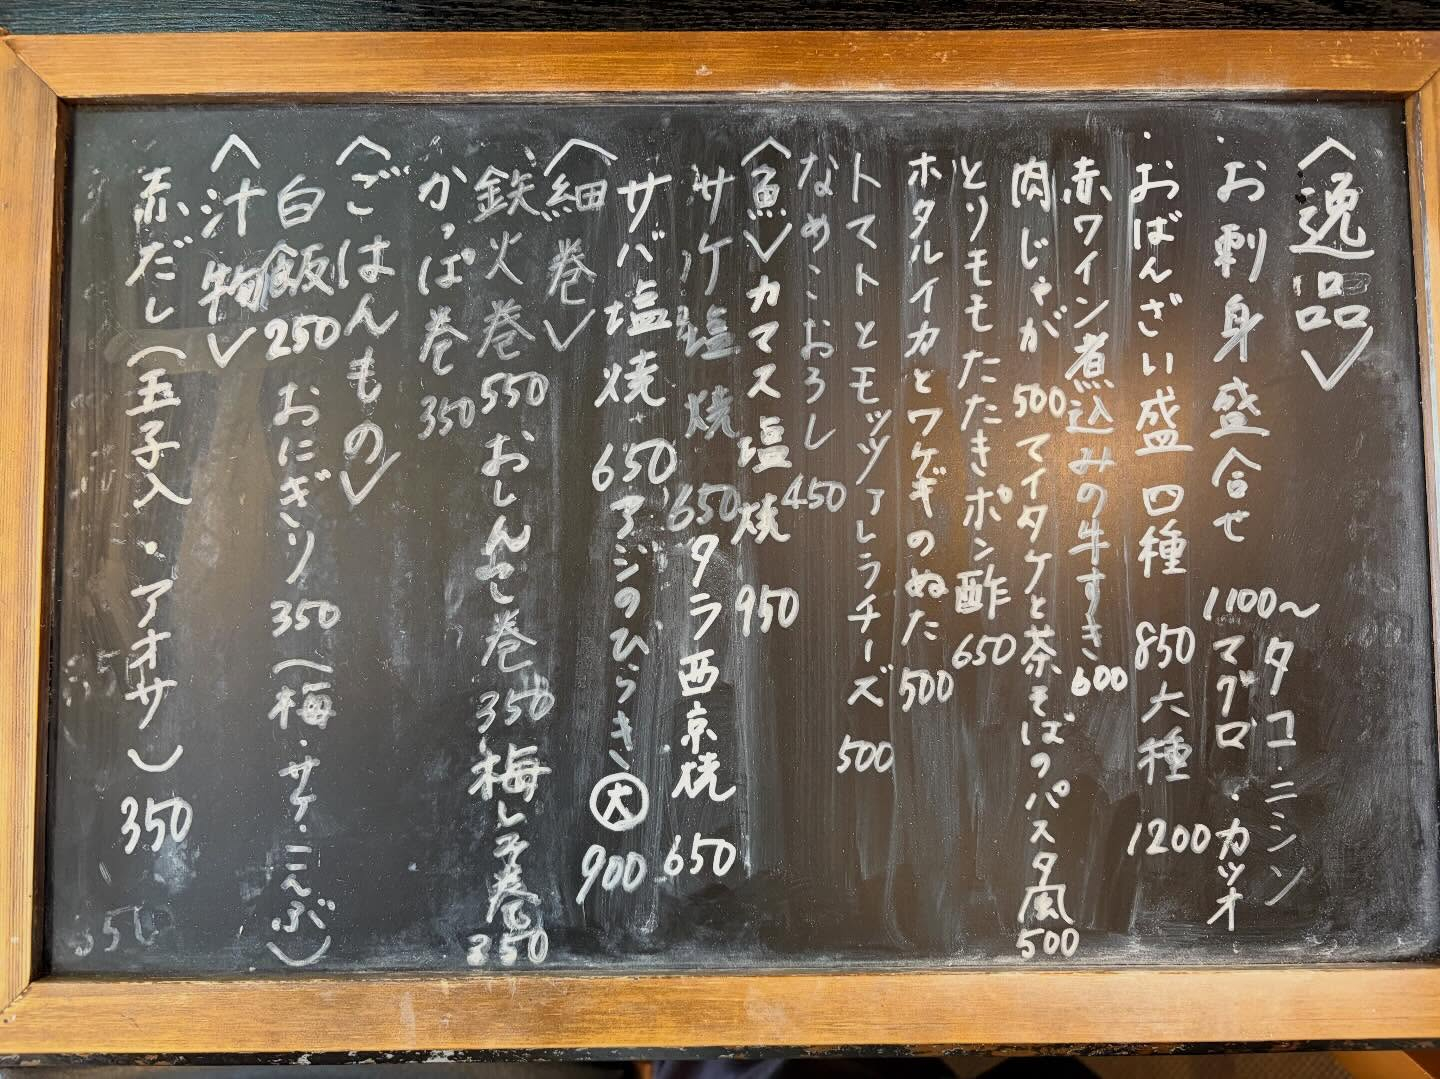 〈逸品〉
お刺身盛合せ 1100〜 タコ・ニシン
マグロ・カツオ
おばんざい盛 四種 850 六種 1200
赤ワイン煮込みの牛すき 600
肉じゃが 500 マイタケと茶そばのパスタ風 500
とりモモたたきポン酢 650
ホタルイカとワケギのぬた 500
トマトとモッツァレラチーズ 500
なめこおろし 450
〈魚〉カマス塩焼 950
サケ塩焼 650 タラ西京焼 650
サバ塩焼 650 アジのひらき 大 900
〈細巻〉
鉄火巻 550 おしんこ巻 350 梅しそ巻 350
かっぱ巻 350
〈ごはんもの〉
白飯 250 おにぎり 350 (梅・サケ・こんぶ)
〈汁物〉
赤だし(玉子入・アオサ) 350